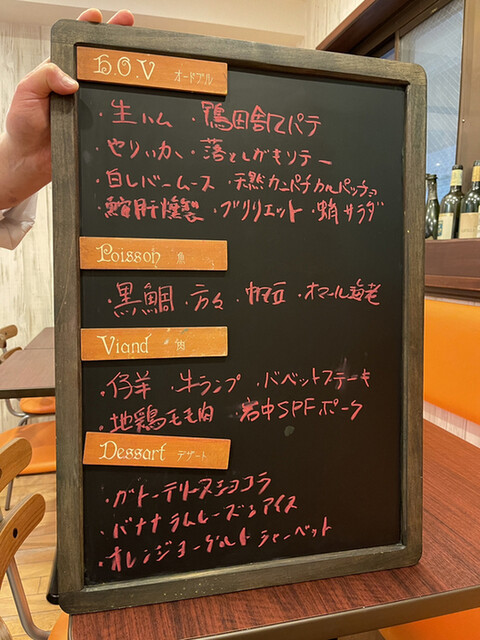 h.O.V オードブル
・生ハム ・鴨田舎風パテ
・やりいか ・落としがキソテー
・白レバームース ・天然カンパチカルパッチョ
・鮟肝燻製 ・ブリリエット ・蛸サラダ
Poisson 魚
・黒鯛 ・方々 ・帆立 ・オマール海老
Viand 肉
・仔羊 ・牛ランプ ・バベットステーキ
・地鶏モモ肉 岩中SPFポーク
Dessart デザート
・ガトーテリーヌショコラ
・バナナラムレーズンアイス
・オレンジヨーグルトシャーベット